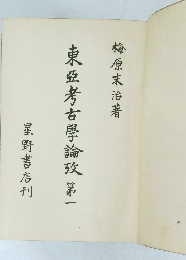 梅原末治著
東亞考古學論攷 第一
星野書店刊